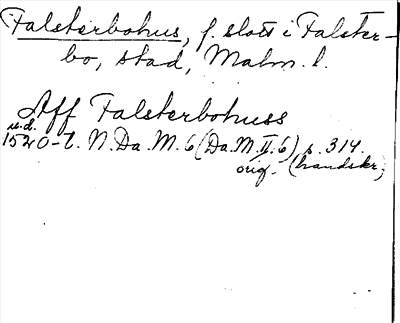 Falsterbohus, f. slott i Falster-
bo, stad, Malm. l.
Aff Falsterbohuss
u.d.
1520-t. N.Da.M. 6 (Da.M.II.6) s. 314.
orig. (handskr.)